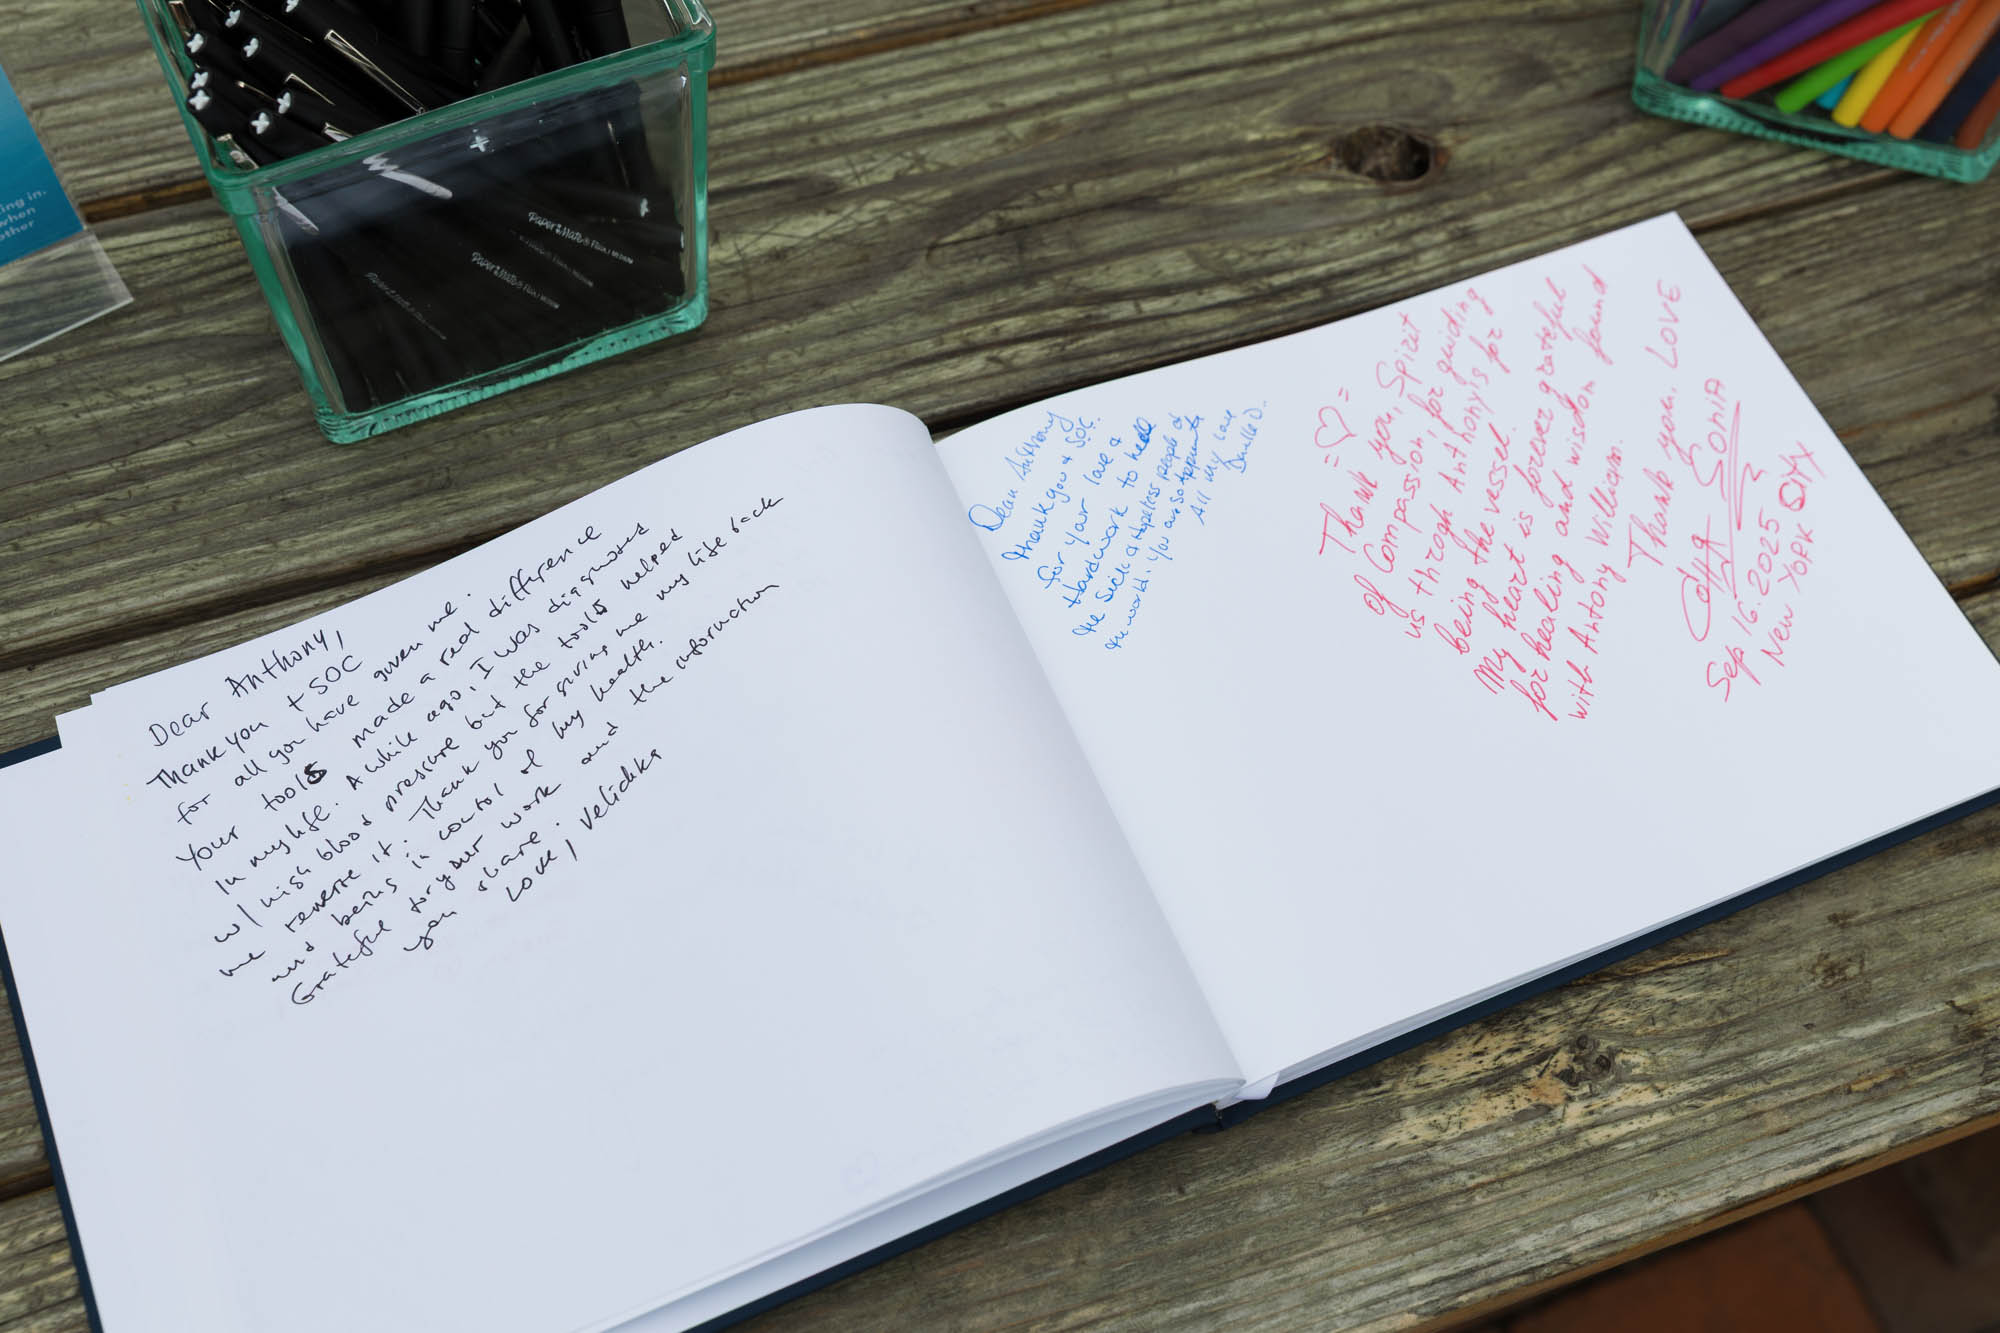 ing in.
when
other
Paper Mate® Flair® MEDIUM
Paper Mate® Flair® MEDIUM
Dear Anthony,
Thank you + SOC
for all you have given me.
Your tools made a real difference
In my life. A while ago, I was diagnosed
w/ high blood pressure but the tools helped
me reverse it. Thank you for giving me my life back
and being in control of my health.
Grateful for your work and the information
you share.
Love, Velichka
Dear Anthony
thank you + SOC.
for your love &
Hardwork to heal
the sick & Hopeless people of
the world. You are so
All my love
Danielle D.
= ♡ =
Thank you, Spirit
of Compassion, for guiding
us throgh Anthony is for
being the vessel.
My heart is forever grateful
for healing and wisdom found
with Antony William.
Thank you. LOVE
SONIA
Sep 16.2025
New YORK